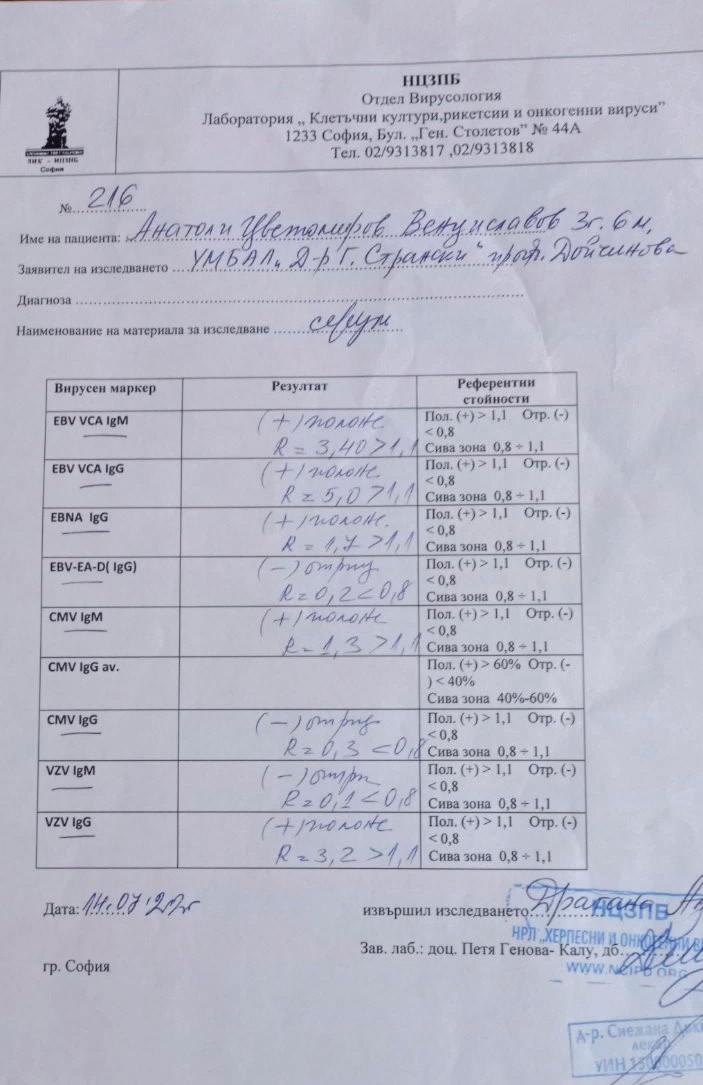 НЦЗПБ
Отдел Вирусология
Лаборатория „ Клетъчни култури,рикетсии и онкогенни вируси”
1233 София, Бул. „Ген. Столетов” № 44А
Тел. 02/9313817 ,02/9313818
ЛИК - НЦЗПБ
София
№ 216
Име на пациента: Анатоли Цветомиров Венциславов 3г. 6 м.
Заявител на изследването УМБАЛ „Д-р Г. Странски“ проф. Дойчинова
Диагноза
Наименование на материала за изследване серум
Вирусен маркер Резултат Референтни
стойности
EBV VCA IgM (+) полож R = 3,40 > 1,1 Пол. (+) > 1,1 Отр. (-)
< 0,8
Сива зона 0,8 ÷ 1,1
EBV VCA IgG (+) полож R = 5,0 > 1,1 Пол. (+) > 1,1 Отр. (-)
< 0,8
Сива зона 0,8 ÷ 1,1
EBNA IgG (+) полож. R = 1,7 > 1,1 Пол. (+) > 1,1 Отр. (-)
< 0,8
Сива зона 0,8 ÷ 1,1
EBV-EA-D( IgG) (-) отриц R = 0,2 < 0,8 Пол. (+) > 1,1 Отр. (-)
< 0,8
Сива зона 0,8 ÷ 1,1
CMV IgM (+) полож R = 1,3 > 1,1 Пол. (+) > 1,1 Отр. (-)
< 0,8
Сива зона 0,8 ÷ 1,1
CMV IgG av. Пол. (+) > 60% Отр. (-
) < 40%
Сива зона 40%-60%
CMV IgG (-) отриц R = 0,3 < 0,8 Пол. (+) > 1,1 Отр. (-)
< 0,8
Сива зона 0,8 ÷ 1,1
VZV IgM (-) отри R = 0,1 < 0,8 Пол. (+) > 1,1 Отр. (-)
< 0,8
Сива зона 0,8 ÷ 1,1
VZV IgG (+) полож R = 3,2 > 1,1 Пол. (+) > 1,1 Отр. (-)
< 0,8
Сива зона 0,8 ÷ 1,1
Дата: 14.07.22г извършил изследването Драгана
НЦЗПБ
НРЛ „ХЕРПЕСНИ И ОНКОГЕННИ
Зав. лаб.: доц. Петя Генова- Калу, дб
WWW.NCIPD.ORG
гр. София
Д-р. Снежана
лекар
УИН